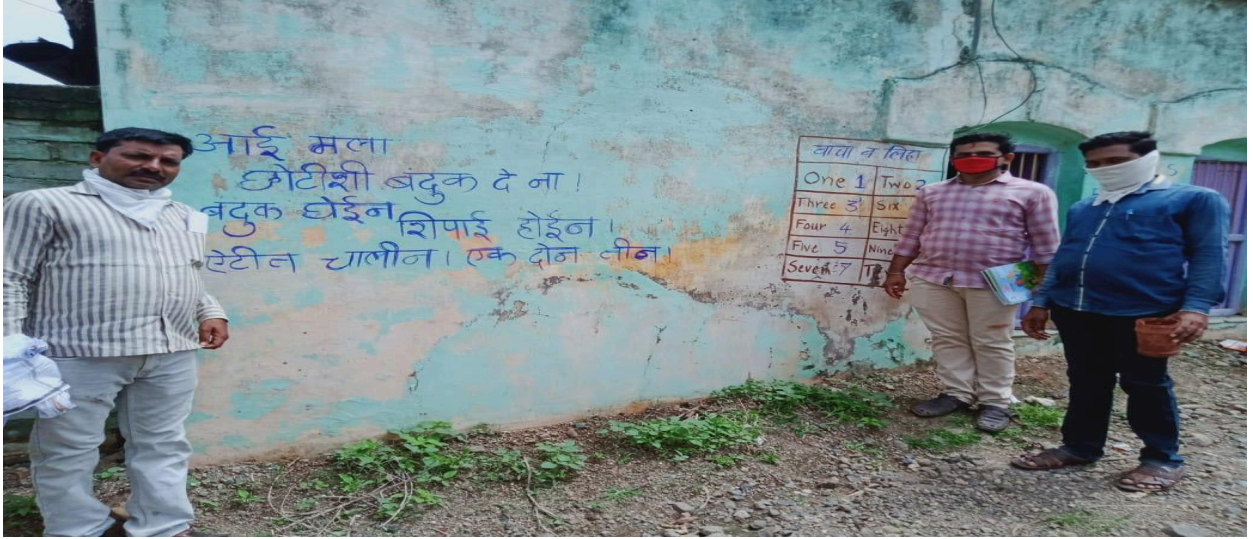 आई मला
छोटीशी बंदुक दे ना!
बंदुक घेईन
शिपाई होईन।
ऐटीत चालीन। एक दोन तीन।
वाचा व लिहा
One 1 Two 2
Three 3 Six
Four 4 Eight
Five 5 Nine
Seven 7